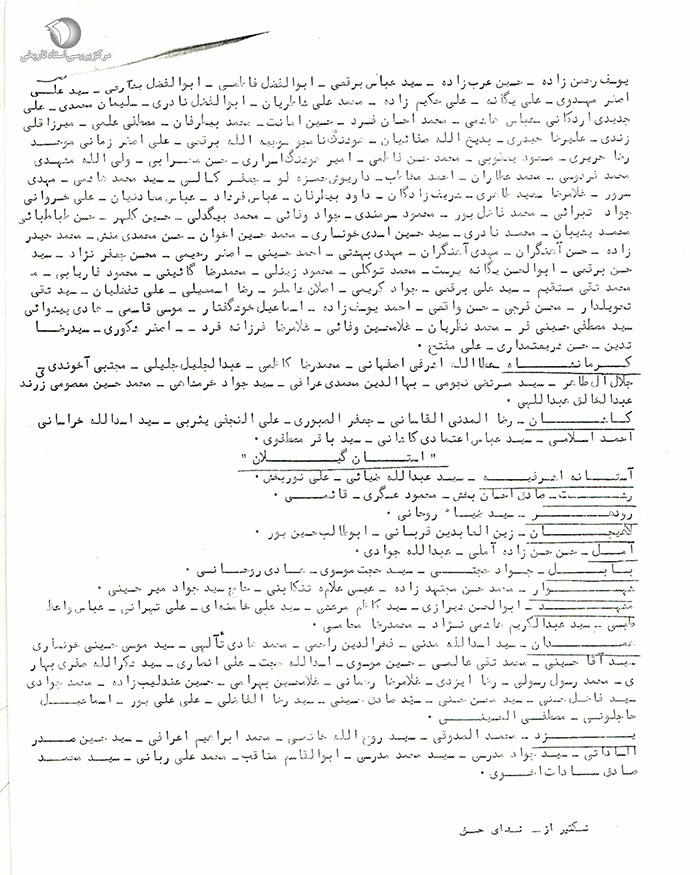 مرکز بررسی اسناد تاریخی
یوسف رحمن زاده ـ حسین عرب زاده ـ سید عباس برقعی ـ ابوالفضل فاطمی ـ ابوالفضل ـ سید علی
اصغر مهدوی ـ علی یگانه ـ علی حکیم زاده ـ محمد علی شاطریان ـ ابوالفضل نادری ـ سلیمان محمدی ـ علی
جدیدی اردکانی ـ عباس هاشمی ـ محمد احسان فرد ـ حسین امانت ـ محمد ـ مصطفی علمی ـ میرزا قلی
زندی ـ علیرضا حیدری ـ الله صفائیان ـ الله برقعی ـ علی اصغر زمانی موحد
رضا حریری ـ مسعود یعقوبی ـ محمد حسن فاطمی ـ امیر اسراری ـ حسن محرابی ـ ولی الله مشهدی
محمد فردوسی ـ محمد عطاران ـ احمد مخاطب ـ داریوش حمزه لو ـ جعفر کمالی ـ سید محمد هاشمی ـ مهدی
سرور ـ غلامرضا سعید طاهری ـ شریف زادگان ـ داود ـ عباس فرشاد ـ عباس صادقیان ـ علی خسروانی
جواد تبرائی ـ محمد فاضل پور ـ محمود سرمندی ـ جواد وفائی ـ محمد بیگدلی ـ حسین کلهر ـ حسن طباطبائی
محمد پشیبان ـ محمد نادری ـ سید حسین اسدی خونساری ـ محمد حسین اخوان ـ حسن محمدی منش ـ محمد حیدر
زاده ـ حسن آهنگران ـ مهدی آهنگران ـ مهدی بهشتی ـ احمد حسینی ـ اصغر رحیمی ـ محسن جعفر نژاد ـ سید
حسن برقعی ـ ابوالحسن یگانه پرست ـ محمد توکلی ـ محمود زینلی ـ محمدرضا گائینی ـ محمود فاریابی ـ م
محمد تقی مستقیم ـ سید علی برقعی ـ جواد کریمی ـ اصلان شاملو ـ رضا اسمعیلی ـ علی تفضلیان ـ سید تقی
تحویلدار ـ محسن فرجی ـ حسن واقصی ـ احمد یوسف زاده ـ اسماعیل خوشگفتار ـ موسی قاسمی ـ هادی پیشوائی
سید مصطفی حسینی فر ـ محمد نظریان ـ غلامحسین وفائی ـ غلامرضا فرزانه فرد ـ اصغر شکوری ـ سید رضا
تدین ـ حسن شریعتمداری ـ علی مفتح ۰
کرمانشاه ـ عطاالله اشرفی اصفهانی ـ محمدرضا کاظمی ـ عبدالجلیل جلیلی ـ مجتبی آخوندی
جلال آل طاهر ـ سید مرتضی نجومی ـ بهاالدین محمدی عراقی ـ سید جواد خرمشاهی ـ محمد حسین معصومی زرند
عبدالخالق عبداللهی ۰
کاشان ـ رضا المدنی القاسانی ـ جعفر الصبوری ـ علی النجفی یثربی ـ سید اسدالله خراسانی
احمد اسلامی ـ سید عباس اعتمادی کاشانی ـ سید باقر مصطفوی ۰
" استان گیلان "
آستانه اشرفیه ـ سید عبدالله ضیائی ـ علی نوربخش ۰
رشت ـ صادق احسان بخش ـ محمود عسگری ـ قائمی ۰
رودسر ـ سید ضیاء روحانی ۰
لاهیجان ـ زین العابدین قربانی ـ ابوطالب حسین پور ۰
آمل ـ حسن حسن زاده آملی ـ عبدالله جوادی ۰
بابل ـ جواد حجتی ـ سید حجت موسوی ـ هادی روحانی ۰
شهسوار ـ محمد حسن مجتهد زاده ـ عیسی علامه تنکابنی ـ حاج سید جواد میر حسینی ۰
مشهد ـ ابوالحسن شیرازی ـ سید کاظم مرعشی ـ سید علی خامنه‌ای ـ علی تهرانی ـ عباس واعظ
طبسی ـ سید عبدالکریم هاشمی نژاد ـ محمدرضا محامی ۰
همدان ـ سید اسدالله مدنی ـ فخرالدین راحمی ـ محمد هادی تألهی ـ سید موسی حسینی خونساری
سید آقا حسینی ـ محمد تقی عالمی ـ حسین موسوی ـ اسدالله حجت ـ علی انصاری ـ سید شکرالله صفری بهار
ی ـ محمد رسول رسولی ـ رضا ایزدی ـ غلامرضا رحمانی ـ غلامحسین بهرامی ـ حسین عندلیب زاده ـ محمد جوادی
سید فاضل حسنی ـ سید محسن حسنی ـ سید صادق حسینی ـ سید رضا الفاضلی ـ علی علی پور ـ اسماعیل
حاجلوئی ـ مصطفی الحسینی ۰
یزد ـ محمد الصدوقی ـ سید روح الله خاتمی ـ محمد ابراهیم اعرافی ـ سید حسین صدر
الساداتی ـ سید جواد مدرسی ـ سید محمد مدرسی ـ ابوالقاسم مناقب ـ محمد علی ربانی ـ سید محمد
صادق سادات اخوی ۰
تکثیر از ـ ندای حق